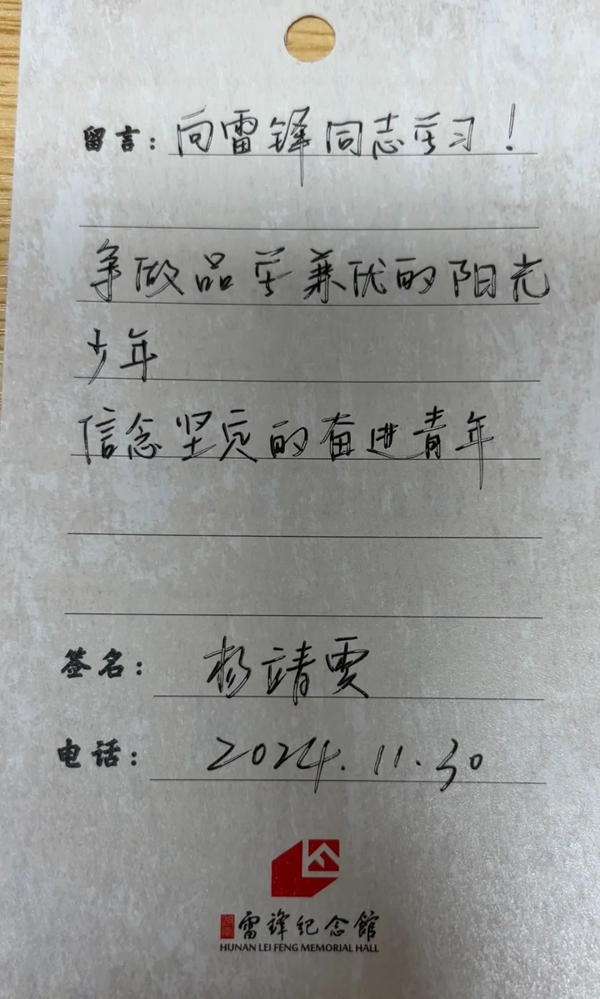 留言：向雷锋同志学习！
争做品学兼优的阳光
少年
信念坚定的奋进青年
签名：杨靖雯
电话：2024.11.30
雷锋纪念館
HUNAN LEI FENG MEMORIAL HALL